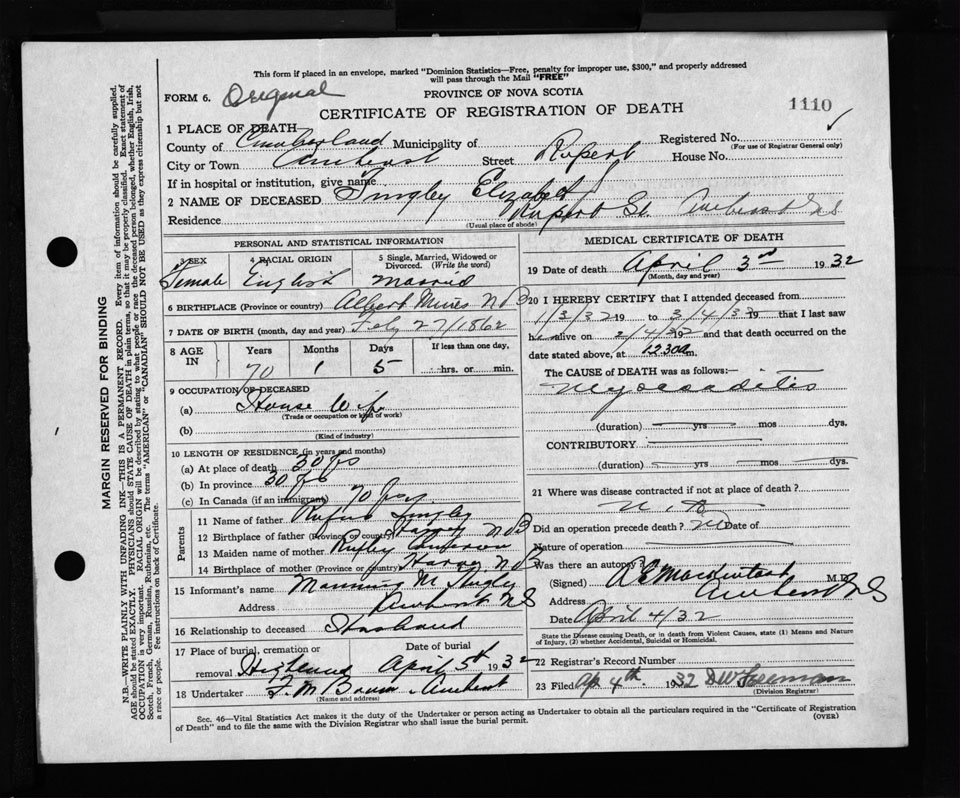 This form if placed in an envelope, marked "Dominion Statistics—Free, penalty for improper use, $300," and properly addressed
will pass through the Mail "FREE"
FORM 6. Original
PROVINCE OF NOVA SCOTIA
CERTIFICATE OF REGISTRATION OF DEATH
1110
1 PLACE OF DEATH
County of Cumberland Municipality of Registered No.
(For use of Registrar General only)
City or Town Amherst Street Rupert House No.
If in hospital or institution, give name
2 NAME OF DECEASED Tingley Elizabeth
Residence Rupert St. Amherst N S
(Usual place of abode)
PERSONAL AND STATISTICAL INFORMATION
3 SEX Female
4 RACIAL ORIGIN English
5 Single, Married, Widowed or Divorced. (Write the word) Married
6 BIRTHPLACE (Province or country) Albert Mines N B
7 DATE OF BIRTH (month, day and year) Feby 27/1862
8 AGE IN Years Months Days If less than one day,
70 1 5 hrs. or min.
9 OCCUPATION OF DECEASED
(a) House Wife
(Trade or occupation or kind of work)
(b)
(Kind of industry)
10 LENGTH OF RESIDENCE (in years and months)
(a) At place of death 30 yrs
(b) In province 30 yrs
(c) In Canada (if an immigrant) 70 yrs
Parents
11 Name of father Rufus Tingley
12 Birthplace of father (Province or country) Harvey N B
13 Maiden name of mother
14 Birthplace of mother (Province or country) Harvey N B
15 Informant's name Manning M Tingley
Address Amherst N S
16 Relationship to deceased Husband
17 Place of burial, cremation or removal Date of burial
Highland April 5th 1932
18 Undertaker F. M Brown Amherst
(Name and address)
MEDICAL CERTIFICATE OF DEATH
19 Date of death April 3rd 1932
(Month, day and year)
20 I HEREBY CERTIFY that I attended deceased from
1/3/32 19 to 3/4/32 19 that I last saw
h alive on 2/4/32 and that death occurred on the
date stated above, at 12.30 a m.
The CAUSE of DEATH was as follows:—
Myocarditis
(duration) yrs mos dys.
CONTRIBUTORY
(duration) yrs mos dys.
21 Where was disease contracted if not at place of death?
Did an operation precede death? No Date of
Nature of operation
Was there an autopsy?
(Signed) M.D.
Address Amherst N S
Date April 4/32
State the Disease causing Death, or in death from Violent Causes, state (1) Means and Nature
of Injury, (2) whether Accidental, Suicidal or Homicidal.
22 Registrar's Record Number
23 Filed Ap. 4th 1932 D W Freeman
(Division Registrar)
Sec. 46—Vital Statistics Act makes it the duty of the Undertaker or person acting as Undertaker to obtain all the particulars required in the "Certificate of Registration
of Death" and to file the same with the Division Registrar who shall issue the burial permit.
(OVER)
MARGIN RESERVED FOR BINDING
N.B.—WRITE PLAINLY WITH UNFADING INK—THIS IS A PERMANENT RECORD. Every item of information should be carefully supplied.
AGE should be stated EXACTLY. PHYSICIANS should STATE CAUSE OF DEATH in plain terms, so that it may be properly classified. Exact statement of
OCCUPATION is very important. RACIAL ORIGIN will be described by stating to what people or race the deceased person belonged, whether English, Irish,
Scotch, French, German, Russian, Ruthenian, etc. The terms "AMERICAN" or "CANADIAN" SHOULD NOT BE USED as they express citizenship but not
a race or people. See instructions on back of Certificate.